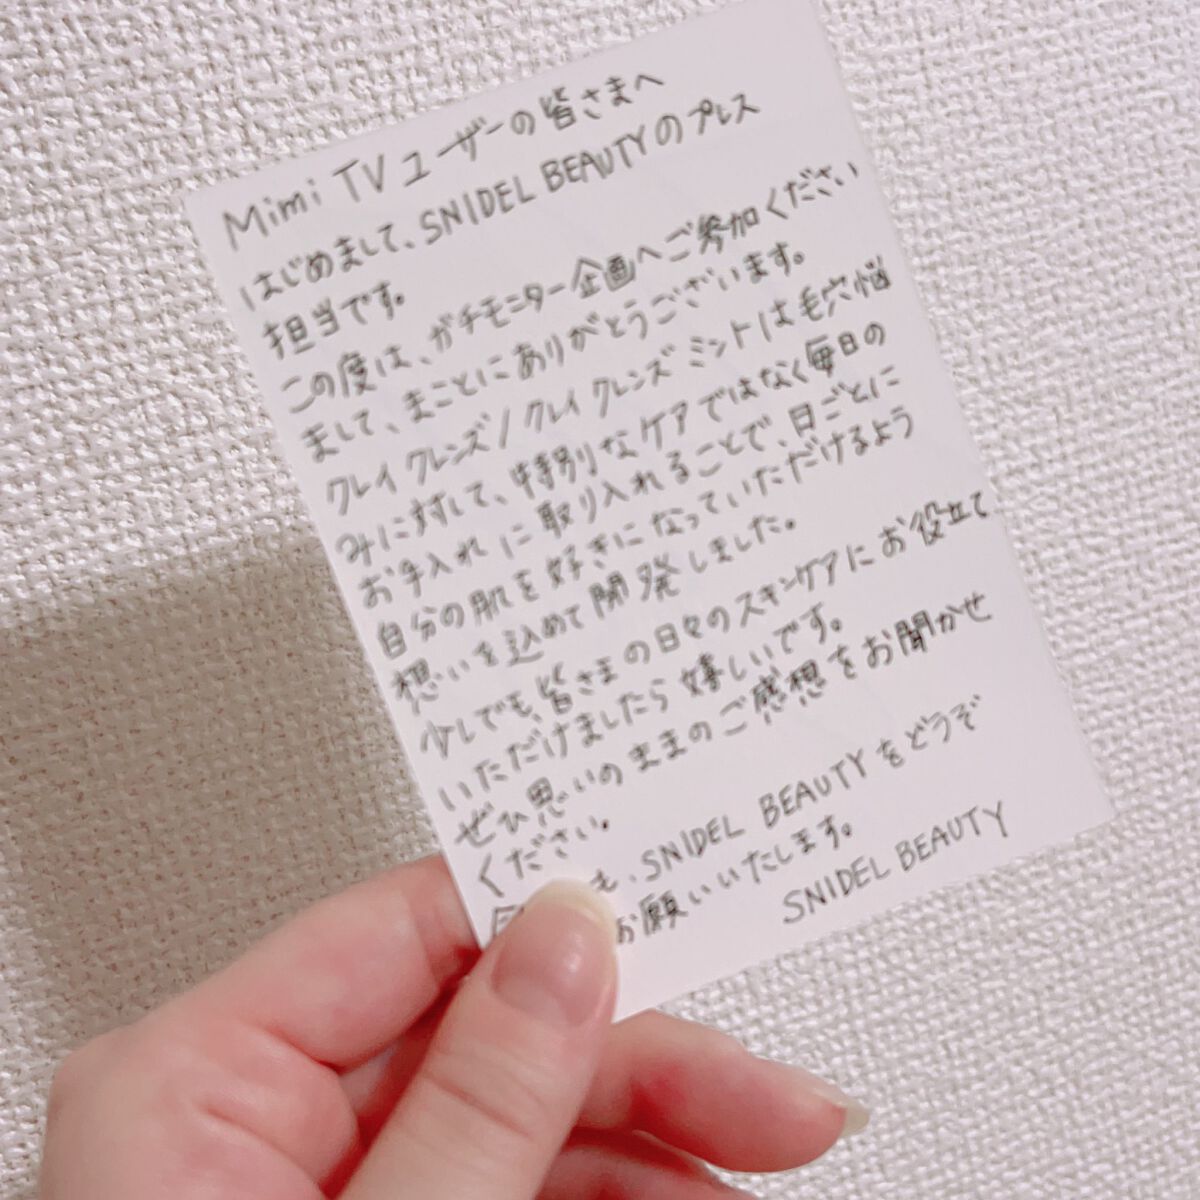 Mimi TVユーザーの皆さまへ
はじめまして、SNIDEL BEAUTYのプレス
担当です。
この度は、ガチモニター企画へご参加ください
まして、まことにありがとうございます。
クレイ クレンズ/クレイ クレンズ ミントは毛穴悩
みに対して、特別なケアではなく毎日の
お手入れに取り入れることで、日ごとに
自分の肌を好きになっていただけるよう
想いを込めて開発しました。
少しでも、皆さまの日々のスキンケアにお役立て
いただけましたら嬉しいです。
ぜひ思いのままのご感想をお聞かせ
ください。
も、SNIDEL BEAUTYをどうぞ
お願いいたします。
SNIDEL BEAUTY